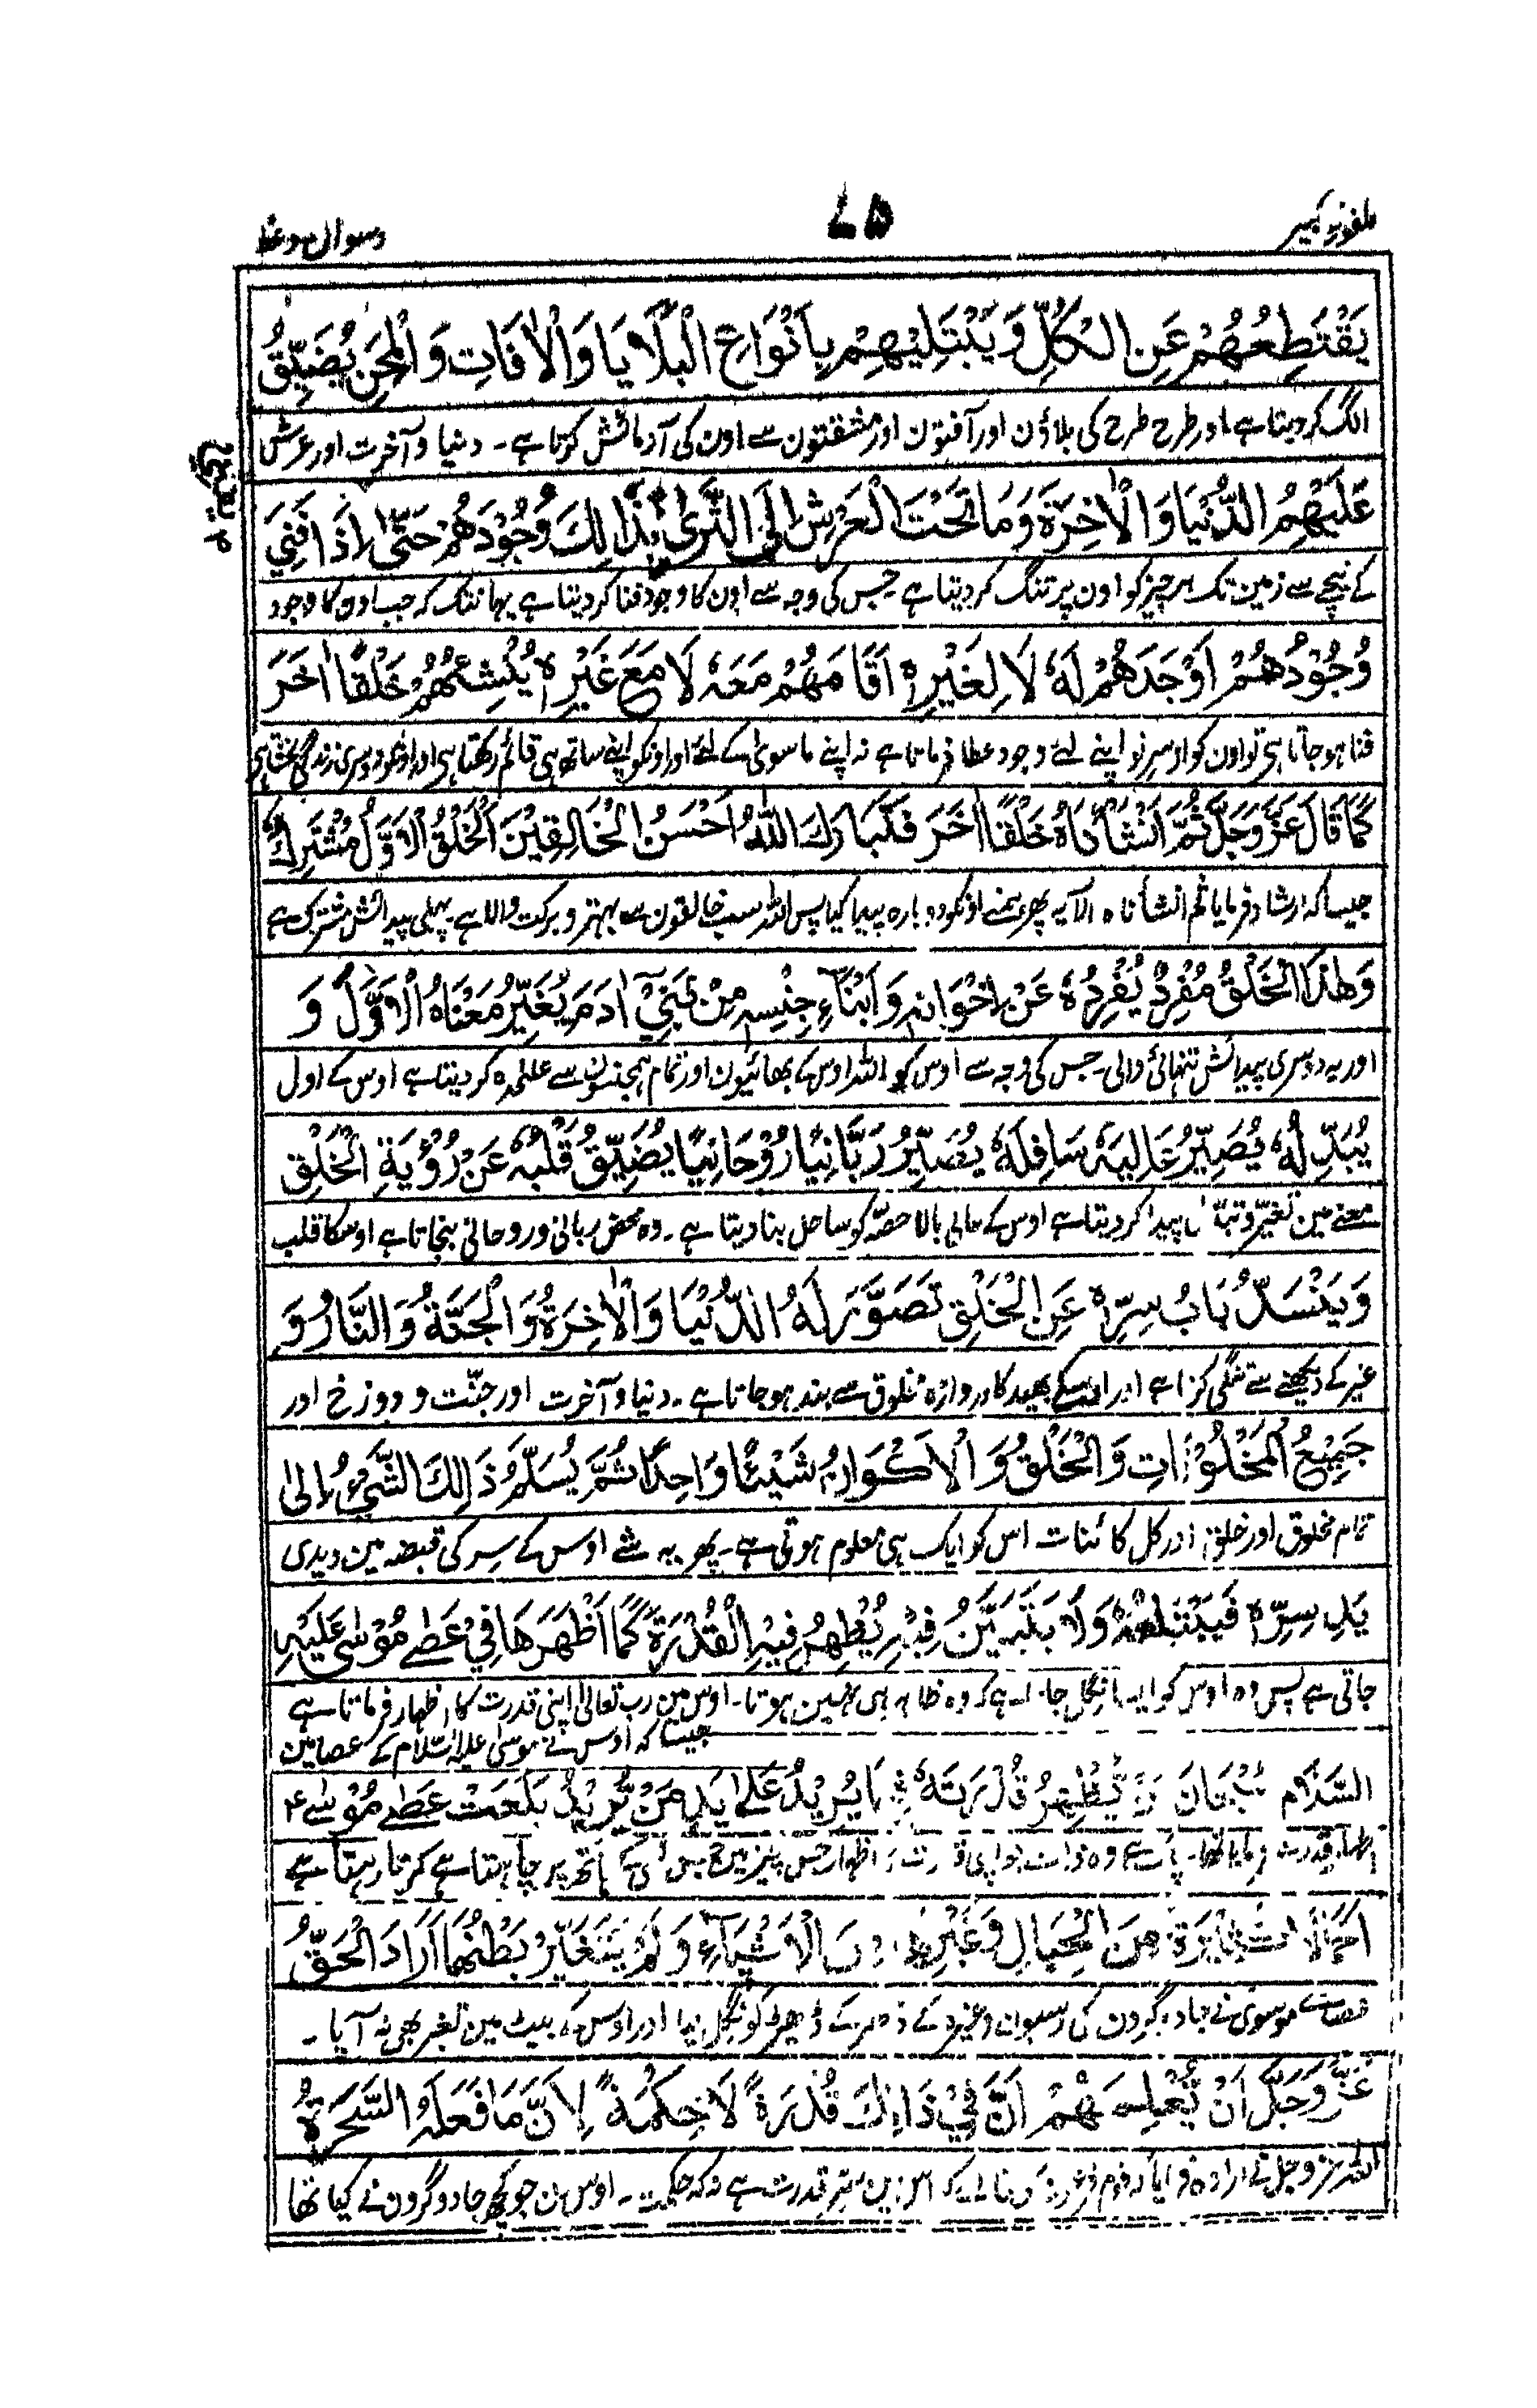 ملفوظ کبیر
۷۵
دسوال وعظ
يَقْتَطِعُهُمْ عَنِ الْكُلِّ وَيَبْتَلِيْهِمْ بِاَنْوَاعِ الْبَلَايَا وَالْاٰفَاتِ وَالْمِحَنِ يُضَيِّقُ
الگ کر دیتا ہے اور طرح طرح کی بلاؤن اور آفتون اور مشقتون سے اون کی آزمائش کرتا ہے ۔ دنیا و آخرت اور عرش
عَلَيْهِمُ الدُّنْيَا وَالْاٰخِرَةَ وَمَا تَحْتَ الْعَرْشِ اِلَى الثَّرٰى بِذَالِكَ وُجُوْدَهُمْ حَتّٰى اِذَا فَنِيَ
کے نیچے سے زمین تک ہر چیز کو اون پر تنگ کر دیتا ہے جس کی وجہ سے اون کا وجود فنا کر دیتا ہے یہانتک کہ جب اون کا وجود
وُجُوْدُهُمْ اَوْجَدَهُمْ لَهٗ لَا لِغَيْرِهٖ اَقَامَهُمْ مَعَهٗ لَا مَعَ غَيْرِهٖ يُنْشِئُهُمْ خَلْقًا اٰخَرَ
فنا ہو جاتا ہی تو اون کو از سر نو اپنے لئے وجود عطا فرماتا ہے نہ اپنے ماسوی کے لئے اور اونکو اپنے ساتھ ہی قائم رکھتا ہی اور اونکو دوسری زندگی بخشتا ہی
كَمَا قَالَ عَزَّ وَجَلَّ ثُمَّ اَنْشَأْنَاهُ خَلْقًا اٰخَرَ فَتَبَارَكَ اللّٰهُ اَحْسَنُ الْخَالِقِيْنَ اَلْخَلْقُ الْاَوَّلُ مُشْتَرِكٌ
جیسا کہ ارشاد فرمایا ثم انشأناہ الآیہ پھر ہمنے اونکو دوبارہ پیدا کیا پس اللہ سب خالقون سے بہتر و برکت والا ہے ۔ پہلی پیدائش مشترک ہے
وَهٰذَا الْخَلْقُ مُفْرِدٌ يُفْرِدُهٗ عَنْ اِخْوَانِهٖ وَاَبْنَآءِ جِنْسِهٖ مِنْ بَنِيْٓ اٰدَمَ يُغَيِّرُ مَعْنَاهُ الْاَوَّلَ وَ
اور یہ دوسری پیدائش تنہائی والی ۔ جس کی وجہ سے اوس کو اللہ اوس کے بھائیون اور تمام ہمجنسون سے علٰحدہ کر دیتا ہے اوس کے اول
يُبَدِّلُهٗ يُصَيِّرُ عَالِيَهٗ سَافِلَهٗ يُصَيِّرُ رَبَّانِيًا رُوْحَانِيًا يُضَيِّقُ قَلْبُهٗ عَنْ رُؤْيَةِ الْخَلْقِ
معنے مین تغیر و تبدل پیدا کر دیتا ہے اوس کے عالی بالا حصہ کو ساحل بنا دیتا ہے ۔ وہ محض ربانی و روحانی بنجاتا ہے اوسکا قلب
وَيَنْسَدُّ بَابُ سِرِّهٖ عَنِ الْخَلْقِ تَصَوَّرَ لَهُ الدُّنْيَا وَالْاٰخِرَةُ وَالْجَنَّةُ وَالنَّارُ وَ
غیر کے دیکھنے سے تنگی کرتا ہے اور اوسکے بھید کا دروازہ مخلوق سے بند ہو جاتا ہے ۔ دنیا و آخرت اور جنّت و دوزخ اور
جَمِيْعُ الْمَخْلُوْقَاتِ وَالْخَلْقُ وَالْاَكْوَانُ شَيْئًا وَاحِدًا ثُمَّ يُسَلَّمُ ذَالِكَ الشَّيْءُ اِلٰى
تمام مخلوق اور خلق اور کل کائنات اس کو ایک ہی معلوم ہوتی ہے ۔ پھر یہ شے اوس کے سر کی قبضہ مین دیدی
يَدِ سِرِّهٖ فَيَبْتَلِعُهٗ وَلَا يَتَبَيَّنُ فِيْهِ يُظْهِرُ فِيْهِ الْقُدْرَةَ كَمَا اَظْهَرَهَا فِيْ عَصٰے مُوْسٰى عَلَيْهِ
جاتی ہے پس وہ اوس کو ایسا نگل جاتا ہے کہ وہ ظاہر ہی نہین ہوتا ۔ اوس مین رب تعالیٰ اپنی قدرت کا اظہار فرماتا ہے
جیسا کہ اوس نے موسیٰ علیہ السّلام کے عصا مین
السَّلَامُ سُبْحَانَ مَنْ يُّظْهِرُ قُدْرَتَهٗ فِيْمَا يُرِيْدُ عَلٰى يَدِ مَنْ يُّرِيْدُ بَلَعَتْ عَصٰے مُوْسٰے ؑ
اظہار قدرت فرمایا تھا ۔ پاک ہے وہ ذات جو اپنی قدرت کا اظہار جس چیز مین جس کسی کے ہاتھ پر چاہتا ہے کرتا رہتا ہے
اَحْمَالًا كَثِيْرَةً مِنَ الْحِبَالِ وَغَيْرِهَا مِنَ الْاَشْيَآءِ وَلَمْ يَتَغَيَّرْ بَطْنُهَا اَرَادَ الْحَقُّ
عصاے موسوی نے جادوگرون کی رسیون وغیرہ کے ڈھیر کے ڈھیر کو نگل لیا اور اوس کے پیٹ مین تغیر بھی نہ آیا ۔
عَزَّ وَجَلَّ اَنْ يُّعْلِمَهُمْ اَنَّ فِيْ ذَالِكَ قُدْرَةً لَا حِكْمَةً لِاَنَّ مَا فَعَلَهُ السَّحَرَةُ
اللہ عز وجل نے ارادہ فرمایا کہ قوم کو بتا دے کہ اس مین قدرت ہے نہ کہ حکمت ۔ اوس دن جو کچھ جادوگرون نے کیا تھا